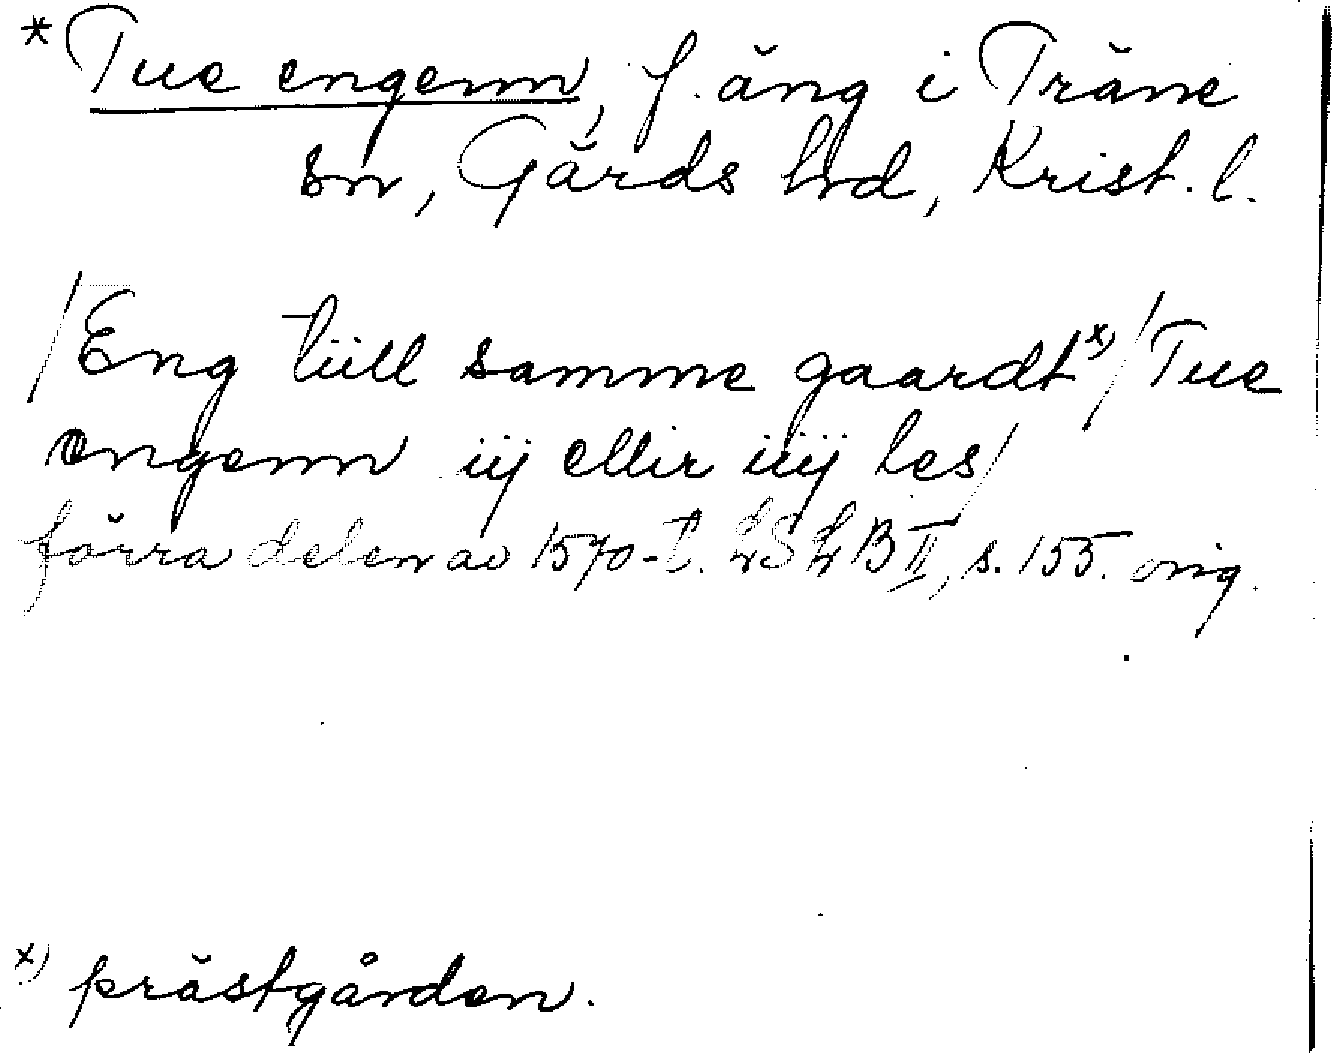 * Tue engenn, f. äng i Träne
sn, Gärds hd, Krist. l.
/Eng tiill samme gaardt x)/ Tue
engenn iij ellir iiij les/
förra delen av 1570-t. LSLB II, s. 155. orig.
x) prästgården.